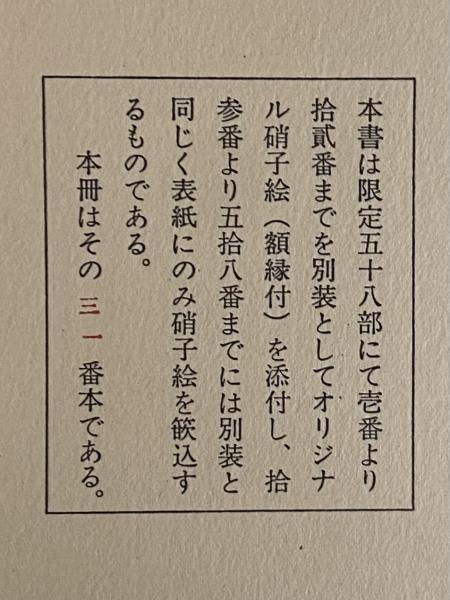 本書は限定五十八部にて壱番より
拾貳番までを別装としてオリジナ
ル硝子絵（額縁付）を添付し、拾
参番より五拾八番までには別装と
同じく表紙にのみ硝子絵を篏込す
るものである。
本冊はその 三一 番本である。